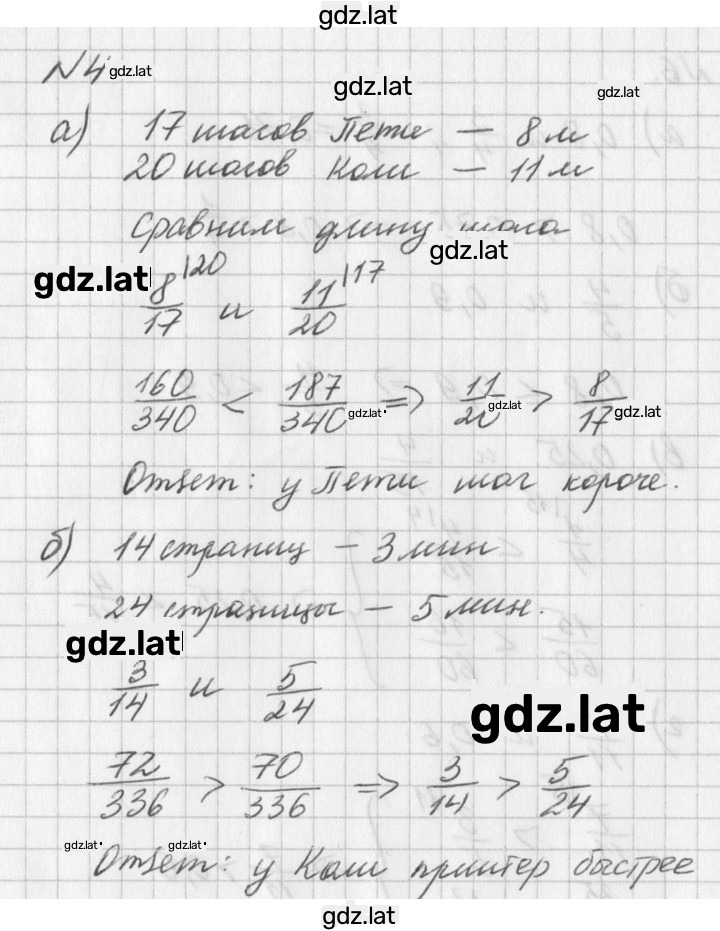 gdz.lat
№4 gdz.lat
gdz.lat
gdz.lat
а) 17 шагов Пети — 8 м
20 шагов Коли — 11 м
Сравним длину шага
gdz.lat
gdz.lat
8/17 |20 и 11/20 |17
160/340 < 187/340 => 11/20 > 8/17
gdz.lat gdz.lat gdz.lat
Ответ: у Пети шаг короче.
б) 14 страниц — 3 мин
24 страницы — 5 мин.
gdz.lat
3/14 и 5/24
gdz.lat
72/336 > 70/336 => 3/14 > 5/24
gdz.lat gdz.lat
Ответ: у Коли принтер быстрее
gdz.lat